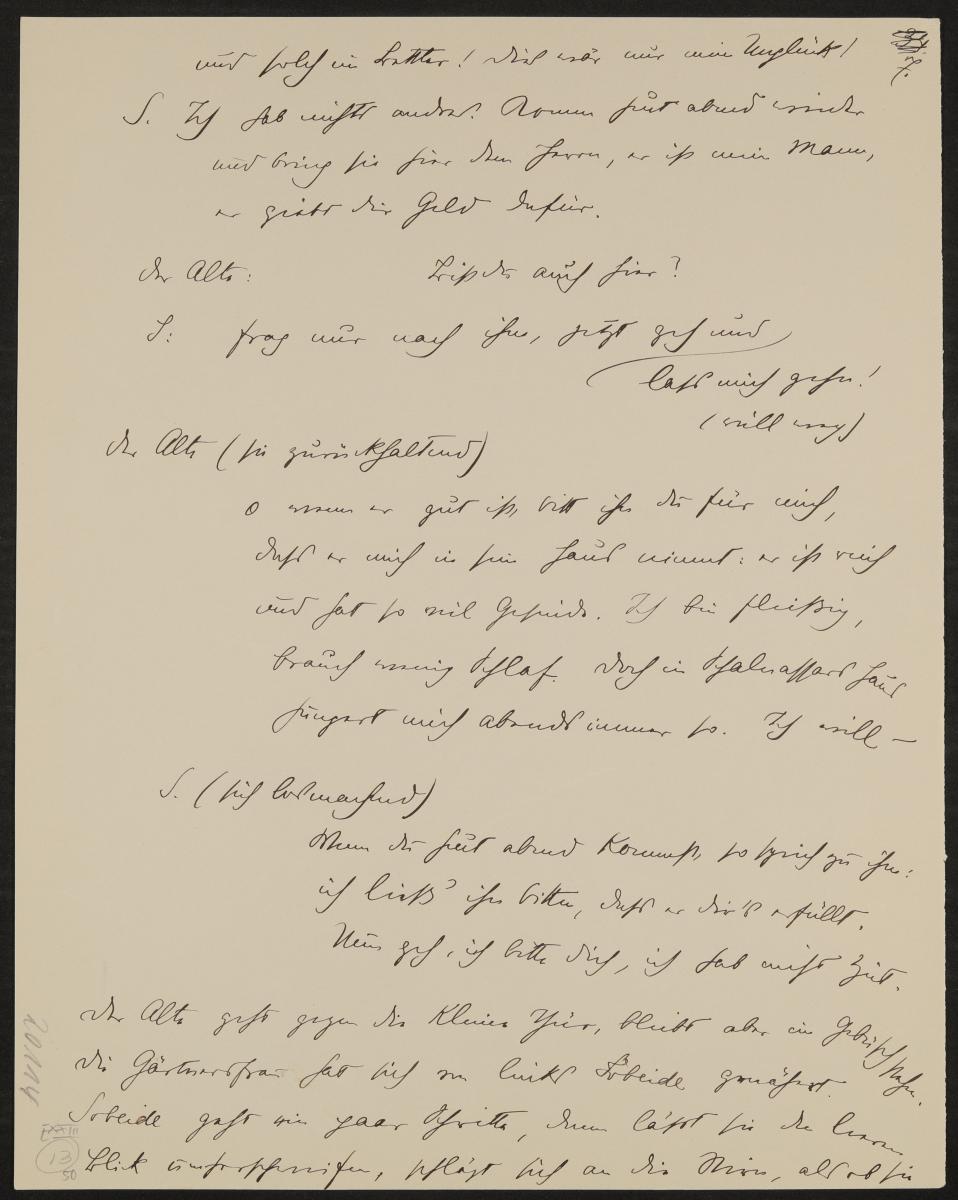 7.
und solch ein Bettler! Dies wär nur mein Unglück!
S. Ich hab nichts andres. Komm heut abend wieder
und bring sie hier dem Herrn, er ist mein Mann,
er giebt dir Geld dafür.
Der Alte: Bist du auch hier?
S: frag nur nach ihm, jetzt geh und
lass mich gehn!
(will weg)
der Alte (sie zurückhaltend)
o wenn er gut ist, bitt ihn du für mich,
dass er mich in sein Haus nimmt: er ist reich
und hat so viel Gesinde. Ich bin fleißig,
brauch wenig Schlaf. Doch in Schalnassars Haus
hungert mich abends immer so. Ich will –
S. (sich losmachend)
Wenn du heut abend kommst, so sprich zu ihm:
ich ließ' ihn bitten, dass er dir's erfüllt.
Nun geh, ich bitte dich, ich hab nicht Zeit.
Der Alte geht gegen die kleine Thür, bleibt aber im Gebüsch stehn.
Die Gärtnersfrau hat sich von links Sobeide genähert.
Sobeide geht ein paar Schritte, dann lässt sie den leeren
Blick umherschweifen, schlägt sich an die Stirn, als ob sie
13
50